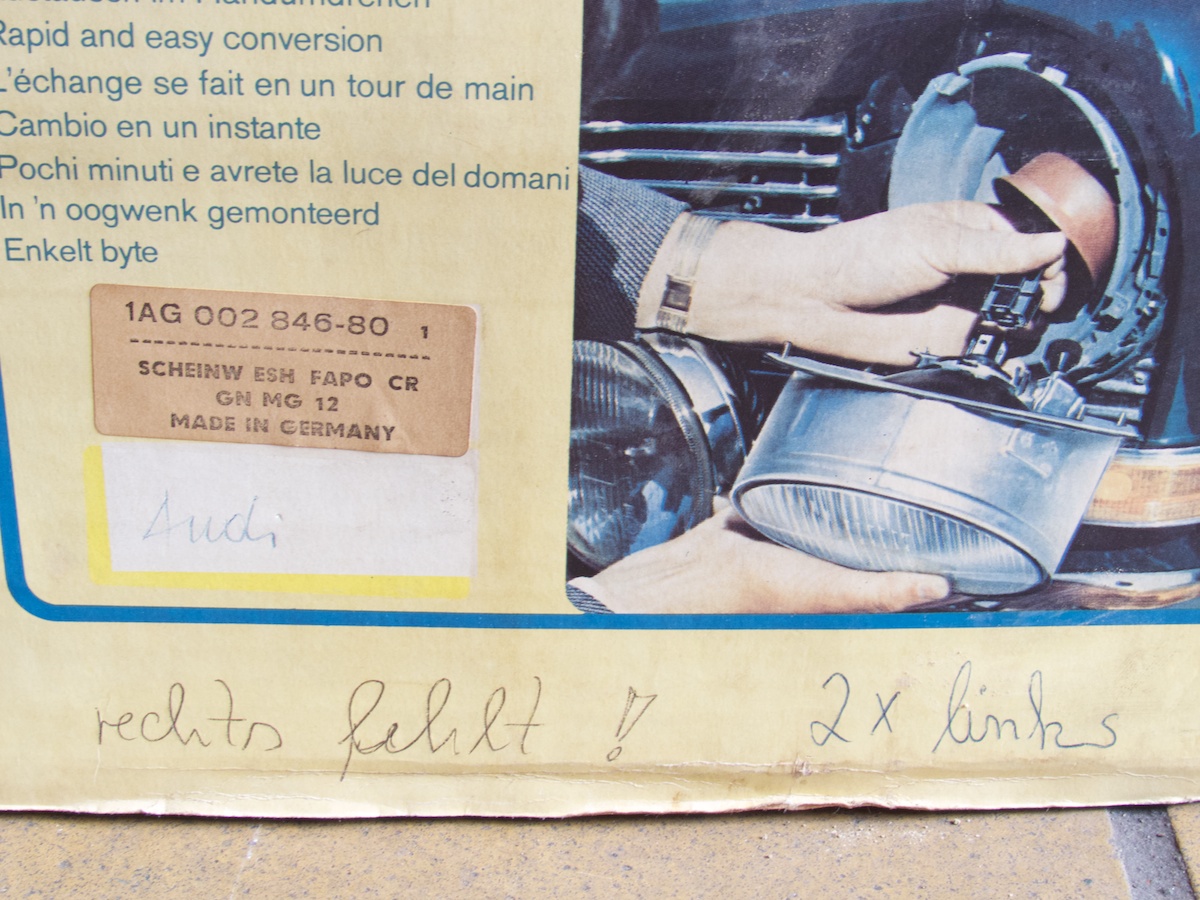 im Handumdrehen
Rapid and easy conversion
L'échange se fait en un tour de main
Cambio en un instante
Pochi minuti e avrete la luce del domani
In 'n oogwenk gemonteerd
Enkelt byte
1AG 002 846-80 1
SCHEINW ESH FAPO CR
GN MG 12
MADE IN GERMANY
Audi
rechts fehlt ! 2x links